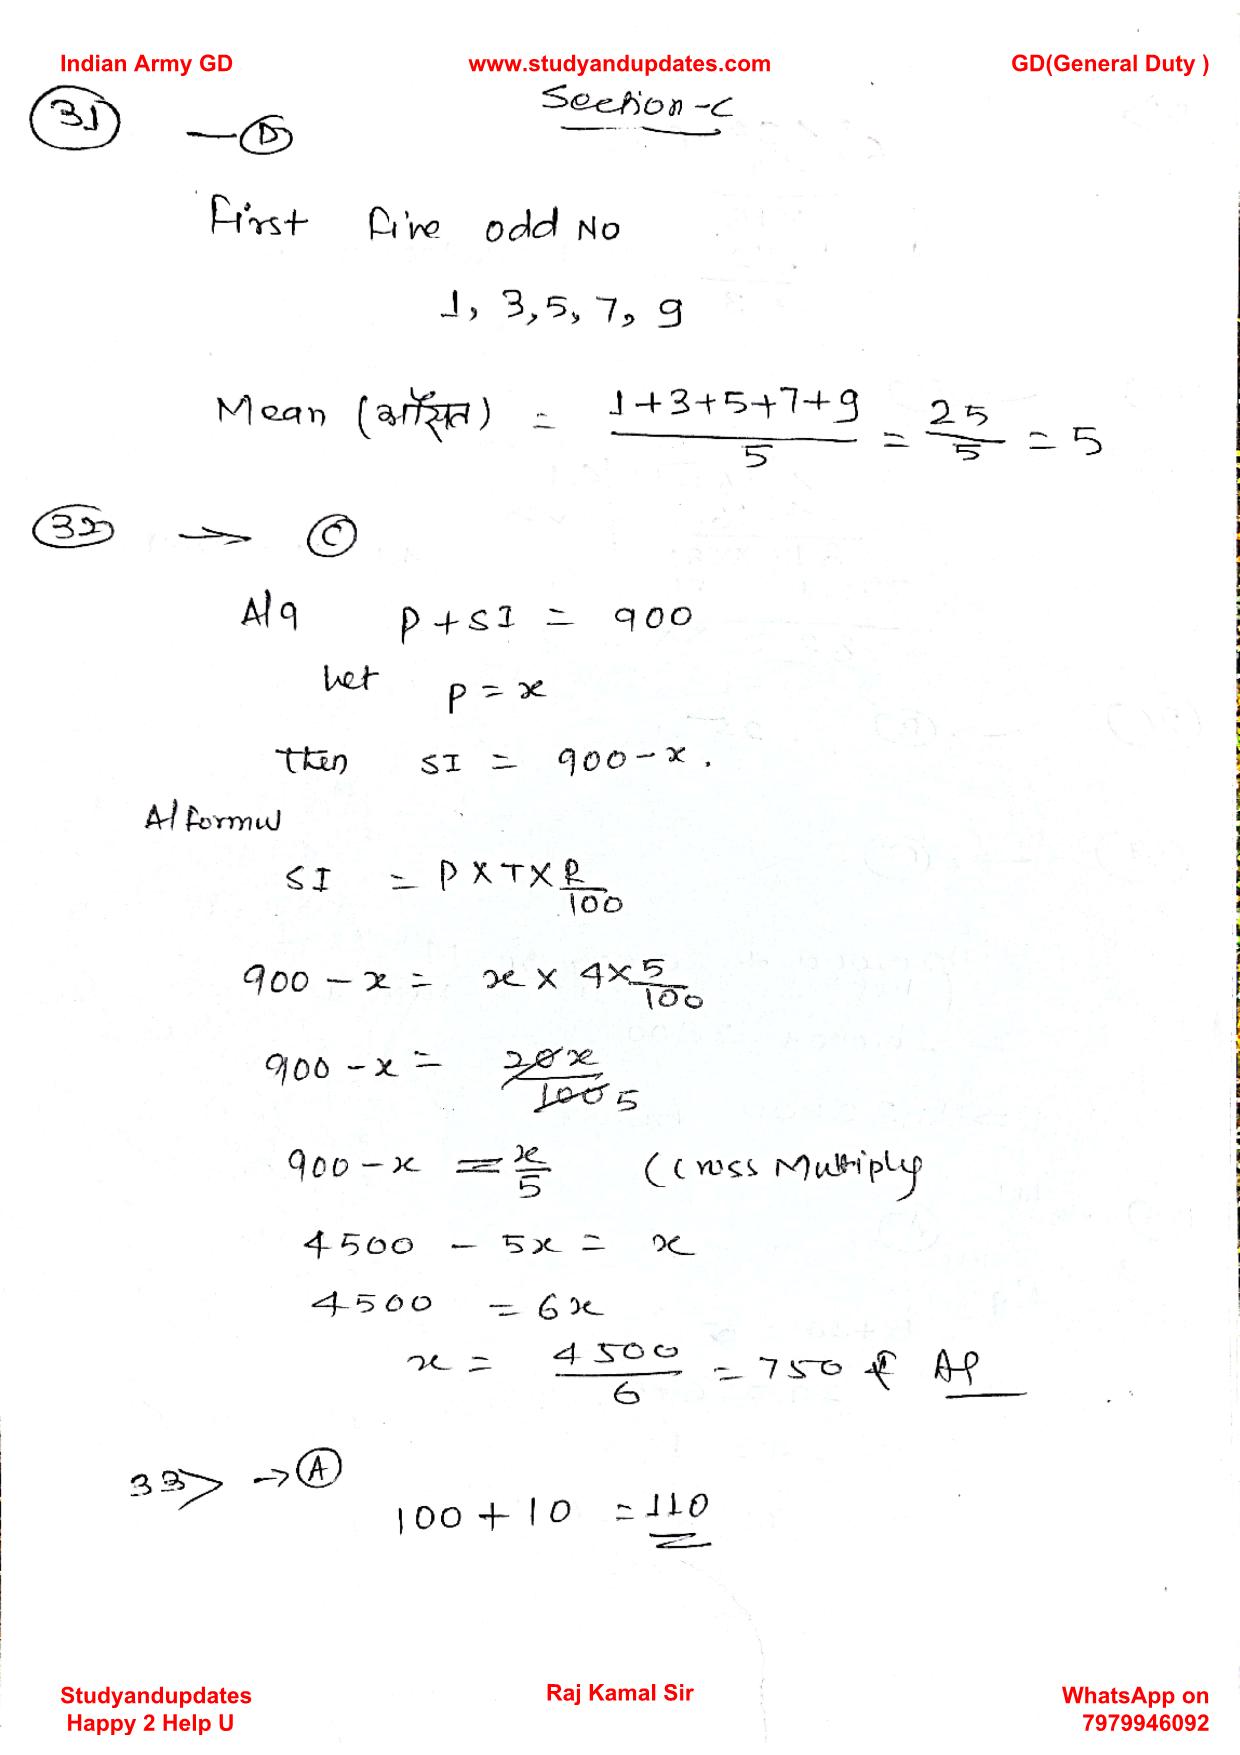 Indian Army GD www.studyandupdates.com GD(General Duty )
Section-C
31 — D
First five odd No
1, 3, 5, 7, 9
Mean (औसत) = 1+3+5+7+9/5 = 25/5 = 5
32 → C
A/q P + SI = 900
Let P = x
then SI = 900 - x.
A/ formul
SI = P X T X R/100
900 - x = x × 4 × 5/100
900 - x = 20x/100 5
900 - x = x/5 (Cross Multiply
4500 - 5x = x
4500 = 6x
x = 4500/6 = 750 ₹
33> → A
100 + 10 = 110
Studyandupdates Raj Kamal Sir WhatsApp on
Happy 2 Help U 7979946092